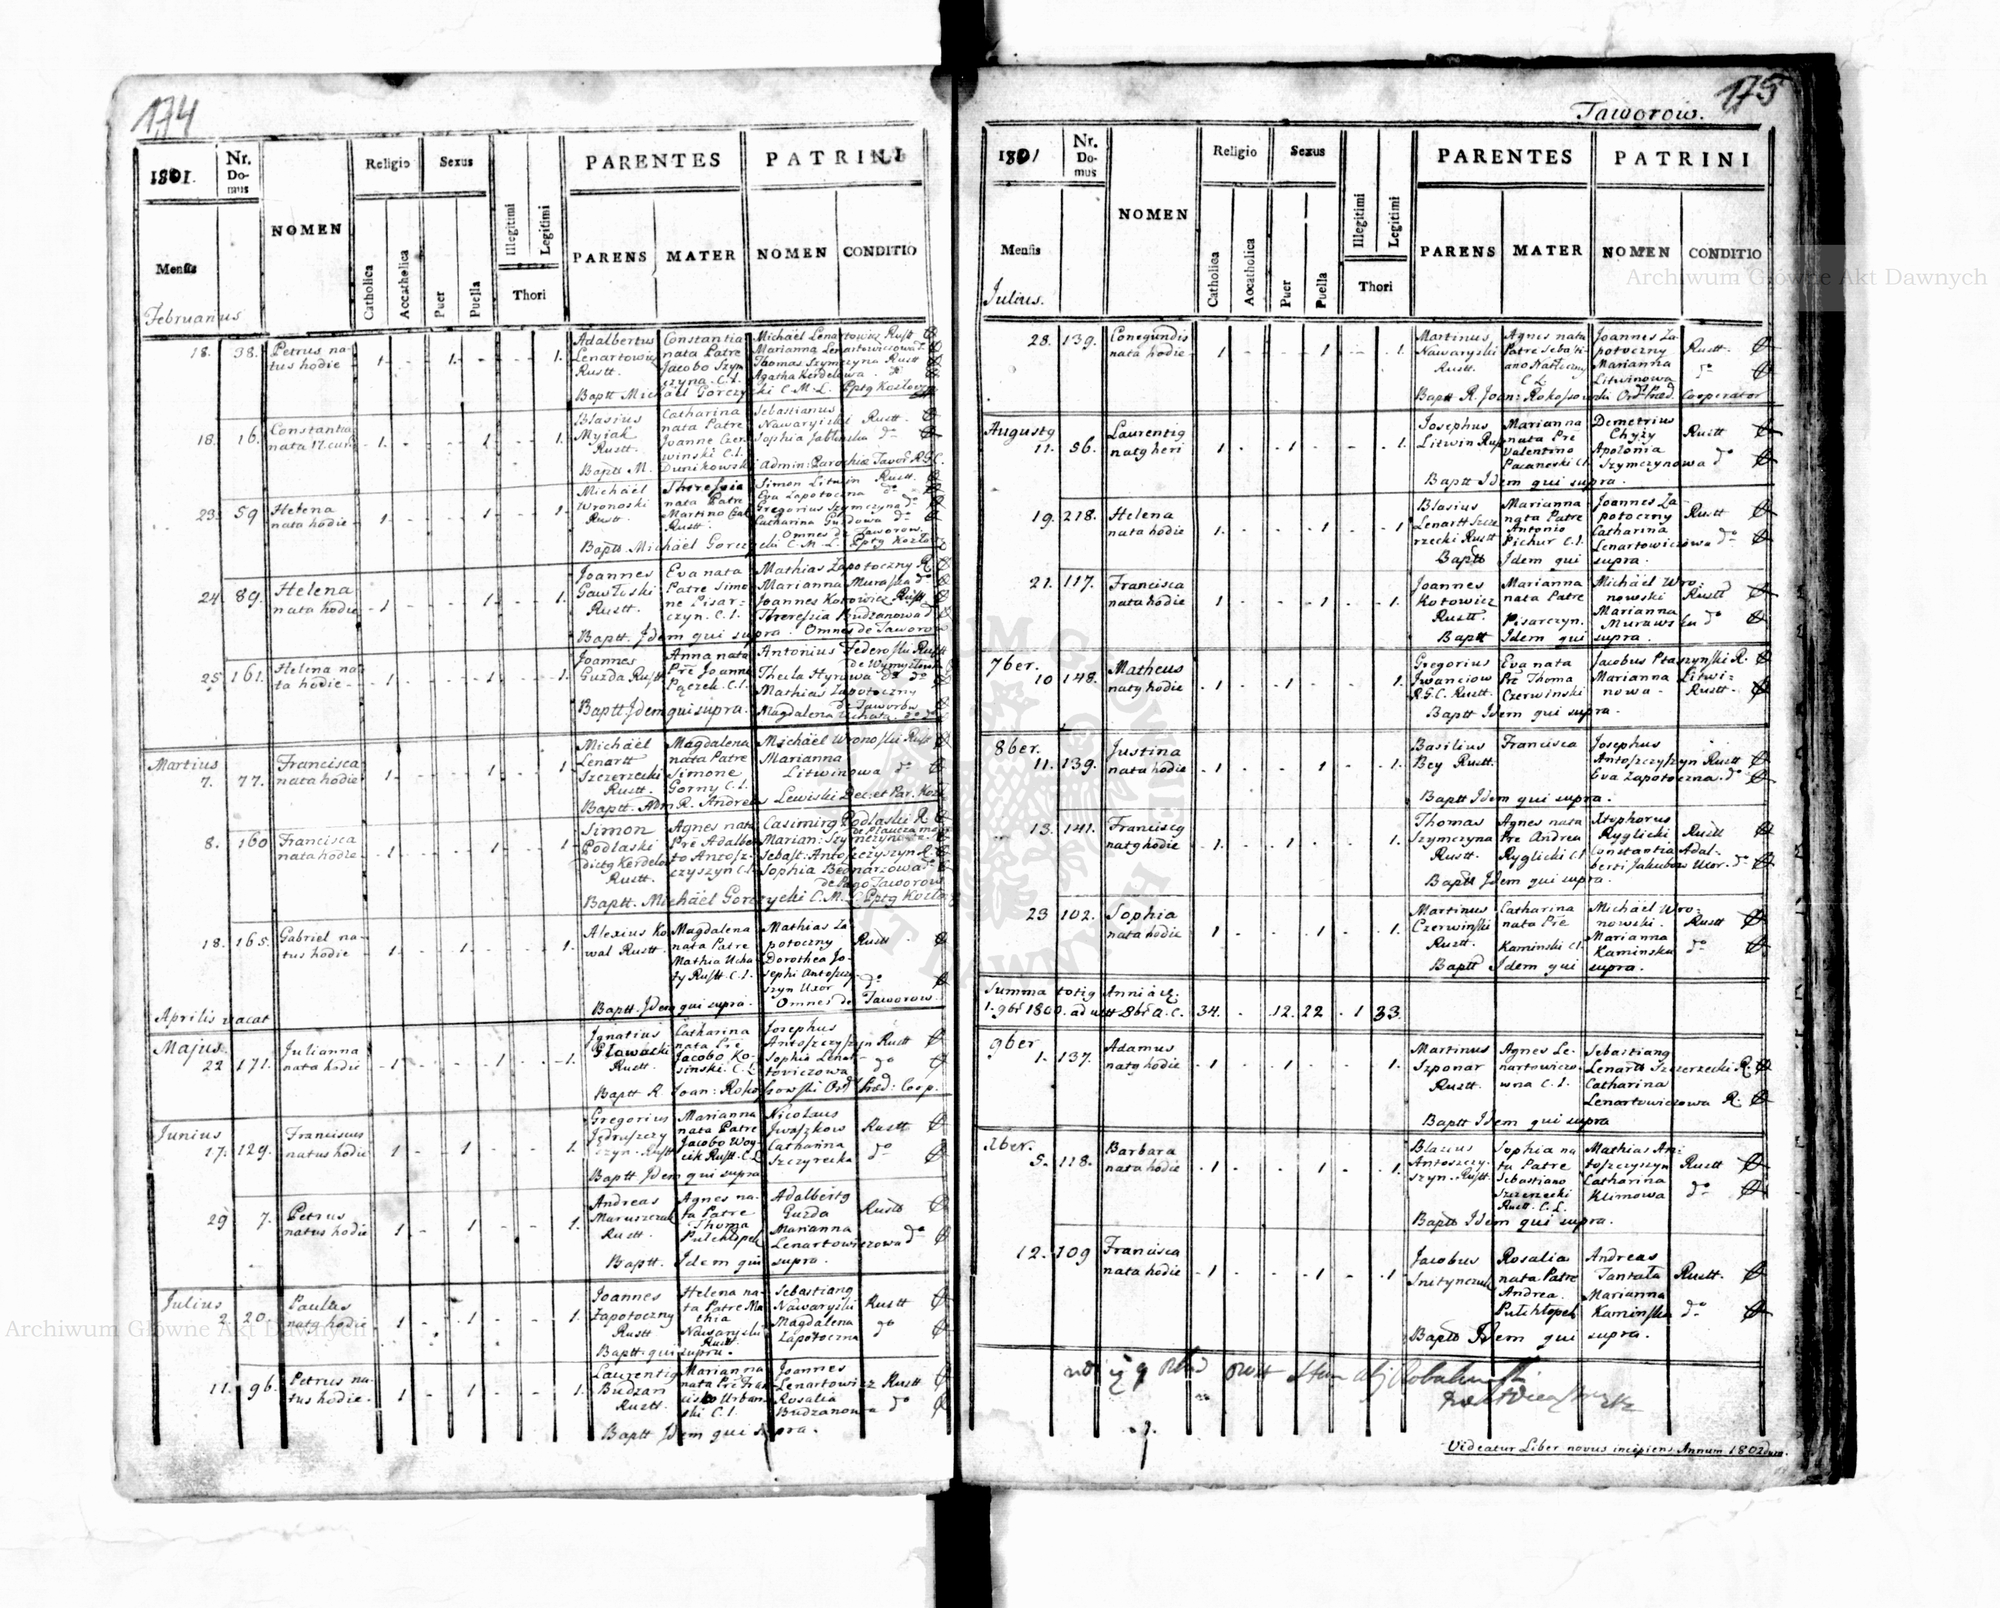 174
1801.
Nr. Domus
NOMEN
Religio
Sexus
PARENTES
PATRINI
Mensis
Catholica
Accatholica
Puer
Puella
Illegitimi
Legitimi
Thori
PARENS
MATER
NOMEN
CONDITIO
Februarius
18. 38. Petrus na-
tus hodie 1 - 1 - - 1.
Adalbertus
Lenartowicz
Rustt.
Constantia
nata Patre
Jacobo Szym
czyna C.L.
Michaël Lenartowicz Rustt
Marianna Lenartowiczowa
Thomas Szymczyna Rustt
Agatha Kerdelowa
Baptt Michaël Gorczycki C. M. L. Pptg Kozłow
18. 16. Constantia
nata 17. 1 - - 1 - 1.
Blasius
Myjak
Rustt.
Catharina
nata Patre
Joanne Czer
winski C.L.
Sebastianus
Nawaryiski Rustt
Sophia Jablinska do
Baptt M. Dunikowski Admin: Parochiæ Tawor R.G.C.
23. 59 Helena
nata hodie 1 - - 1 - 1.
Michaël
Wronoski
Rustt
Theressia
nata Patre
Martino
Rustt.
Simon Litwin Rustt.
Eva Zapotoczna do
Gregorius Szymczyna do
Catharina Guzdowa do
Omnes de Taworow.
Baptt. Michaël Gorczycki C. M. L. Pptg Kozłow
24 89. Helena
nata hodie 1 - - 1 - 1.
Joannes
Gawłiski
Rustt.
Eva nata
Patre Simo
ne Pisar-
czyn. C.L.
Mathias Zapotoczny R.
Marianna Muraska do
Joannes Kotowicz Rustt.
Theressia Budzanowa
Baptt. Jdem qui supra. Omnes de Taworow
25 161. Helena na-
ta hodie 1 - - 1 - 1.
Joannes
Guzda Rustt
Anna nata
Pre Joanne
Pączek. C.L.
Antonius Federoski Rustt
de Wymysłowka
Thecla Hyrywa do do
Mathias Zapotoczny
de Taworow
Magdalena Uchata. do do
Baptt Jdem qui supra.
Martius
7. 77. Francisca
nata hodie 1 - - 1 - 1.
Michaël
Lenartt
Szczerzecki
Rustt.
Magdalena
nata Patre
Simone
Gorny C.L.
Michaël Wronoski Rustt
Marianna
Litwinowa do
Baptt. Adm R. Andreas Lewiski Dec: et Par. Kozł
8. 160 Francisca
nata hodie 1 - - 1 - 1.
Simon
Podlaski
dictg Kerdela
Rustt.
Agnes nata
Pre Adalber
to Antosz-
czyszyn C.L.
Casimirg Podlaski R
Marian: Szymczynowa
Sebast: Antoszczyszyn R
Sophia Bednarzowa
de Pago Taworow
Baptt. Michaël Gorczycki C. M. L. Pptg Kozłow
18. 165. Gabriel na-
tus hodie 1 - 1 - - 1.
Alexius Ko
wal Rustt.
Magdalena
nata Patre
Mathia Ucha
ty Rustt. C.L.
Mathias Za
potoczny Rustt
Dorothea Jo-
sephi Antoszczy
szyn Uxor do
Omnes de Taworow.
Baptt. Jdem qui supra.
Aprilis vacat
Majus.
22 171. Julianna
nata hodie 1 - - 1 - 1.
Jgnatius
Głowacki
Rustt.
Catharina
nata Pre
Jacobo Ko-
sinski. C.L.
Josephus
Antoszczyszyn Rustt
Sophia Lenar-
towiczowa do
Baptt R. Joan: Rokossowski Ord Præd: Coop.
Junius
17. 129. Franciscus
natus hodie 1 - 1 - - 1.
Gregorius
Jędruszczy
szyn. Rustt
Marianna
nata Patre
Jacobo Woy-
cik Rustt. C.L.
Nicolaus
Jwaszkow Rustt
Catharina
Szczyrecka do
Baptt Jdem qui supra
29 7. Petrus
natus hodie 1 - 1 - - 1.
Andreas
Maruszczak
Rustt.
Agnes na-
ta Patre
Thoma
Pułchłopek
Adalbertg
Guzda Rustt
Marianna
Lenartowiczowa do
Baptt. Jdem qui supra.
Julius
2. 20. Paulus
natg hodie 1 - 1 - - 1.
Joannes
Zapotoczny
Rustt
Helena na-
ta Patre Ma
thia
Nawaryski
Rustt.
Sebastiang
Nawaryski Rustt
Magdalena
Zapotoczna do
Baptt. qui supra.
11. 96. Petrus na-
tus hodie. 1 - 1 - - 1.
Laurentig
Budzan
Rustt.
Marianna
nata Pre Fran
cisco Urban
ski C.L.
Joannes
Lenartowicz Rustt
Rosalia
Budzanowa do
Baptt Jdem qui supra.
175
Taworow.
1801
Nr. Domus
NOMEN
Religio
Sexus
PARENTES
PATRINI
Mensis
Catholica
Accatholica
Puer
Puella
Illegitimi
Legitimi
Thori
PARENS
MATER
NOMEN
CONDITIO
Julius.
28. 139. Conegundis
nata hodie 1 - - 1 - 1.
Martinus
Nawaryski
Rustt.
Agnes nata
Patre Sebasti
ano Natłoczny
C.L.
Joannes Za-
potoczny Rustt.
Marianna
Litwinowa do
Baptt R. Joan: Rokossowski Ord Præd. Cooperator
Augustg
11. 56. Laurentig
natg heri 1 - 1 - - 1.
Josephus
Litwin Rustt
Marianna
nata Pre
Valentino
Pacanoski C.L.
Demetrius
Chyży Rustt
Apolonia
Szymczynowa do
Baptt Idem qui supra.
19. 218. Helena
nata hodie 1. - - 1 - 1
Blasius
Lenartt Szcze
rzecki Rustt
Marianna
nata Patre
Antonio
Pichur C.L.
Joannes Za
potoczny Rustt
Catharina
Lenartowiczowa do
Baptt Jdem qui supra.
21. 117. Francisca
nata hodie 1 - - 1 - 1.
Joannes
Kotowicz
Rustt.
Marianna
nata Patre
Pisarczyn.
Michaël Wro-
nowski Rustt
Marianna
Murawska do
Baptt Jdem qui supra.
7ber.
10 148. Matheus
natg hodie 1 - 1 - - 1.
Gregorius
Jwanciow
R.G.C. Rustt.
Eva nata
Pre Thoma
Czerwinski
Jacobus Ptaszynski R.
Marianna Litwi-
nowa - Rustt.
Baptt Idem qui supra.
8ber.
11. 139. Justina
nata hodie 1 - - 1 - 1.
Basilius
Bey Rustt.
Francisca
Josephus
Antoszczyszyn Rustt
Eva Zapotoczna. do
Baptt Idem qui supra.
13. 141. Franciscg
natg hodie 1 - 1 - - 1.
Thomas
Szymczyna
Rustt.
Agnes nata
Pre Andrea
Ryglicki C.L.
Xtophorus
Ryglicki Rustt
Constantia Adal-
berti Jakubow Uxor. do
Baptt Jdem qui supra.
23 102. Sophia
nata hodie 1 - - 1 - 1.
Martinus
Czerwiński
Rustt.
Catharina
nata Pre
Kaminski C.L.
Michaël Wro-
nowski. Rustt
Marianna
Kaminska do
Baptt Jdem qui supra.
Summa totig Anni
1. 9br 1800. ad 8br a. c. 34. - 12. 22 - 1 33.
9ber
1. 137. Adamus
natg hodie 1 - 1 - - 1.
Martinus
Szponar
Rustt.
Agnes Le-
nartowiczo-
wna C.L.
Sebastiang
Lenartt Szczerzecki R.
Catharina
Lenartowiczowa R.
Baptt Idem qui supra
Xber.
5. 118. Barbara
nata hodie 1 - - 1 - 1.
Blazius
Antoszczy-
szyn. Rustt.
Sophia na
ta Patre
Sebastiano
Szczerzecki
Rustt. C.L.
Mathias An-
toszczyszyn Rustt
Catharina
Klimowa do
Baptt Idem qui supra.
12. 109 Francisca
nata hodie 1 - - 1 - 1
Jacobus
Snitynczuk
Rosalia
nata Patre
Andrea.
Pułchłopek
Andreas
Tantała Rustt.
Marianna
Kaminska do
Baptt Idem qui supra.
Videatur Liber novus incipiens Annum 1802dum.
Archiwum Główne Akt Dawnych
Archiwum Główne Akt Dawnych